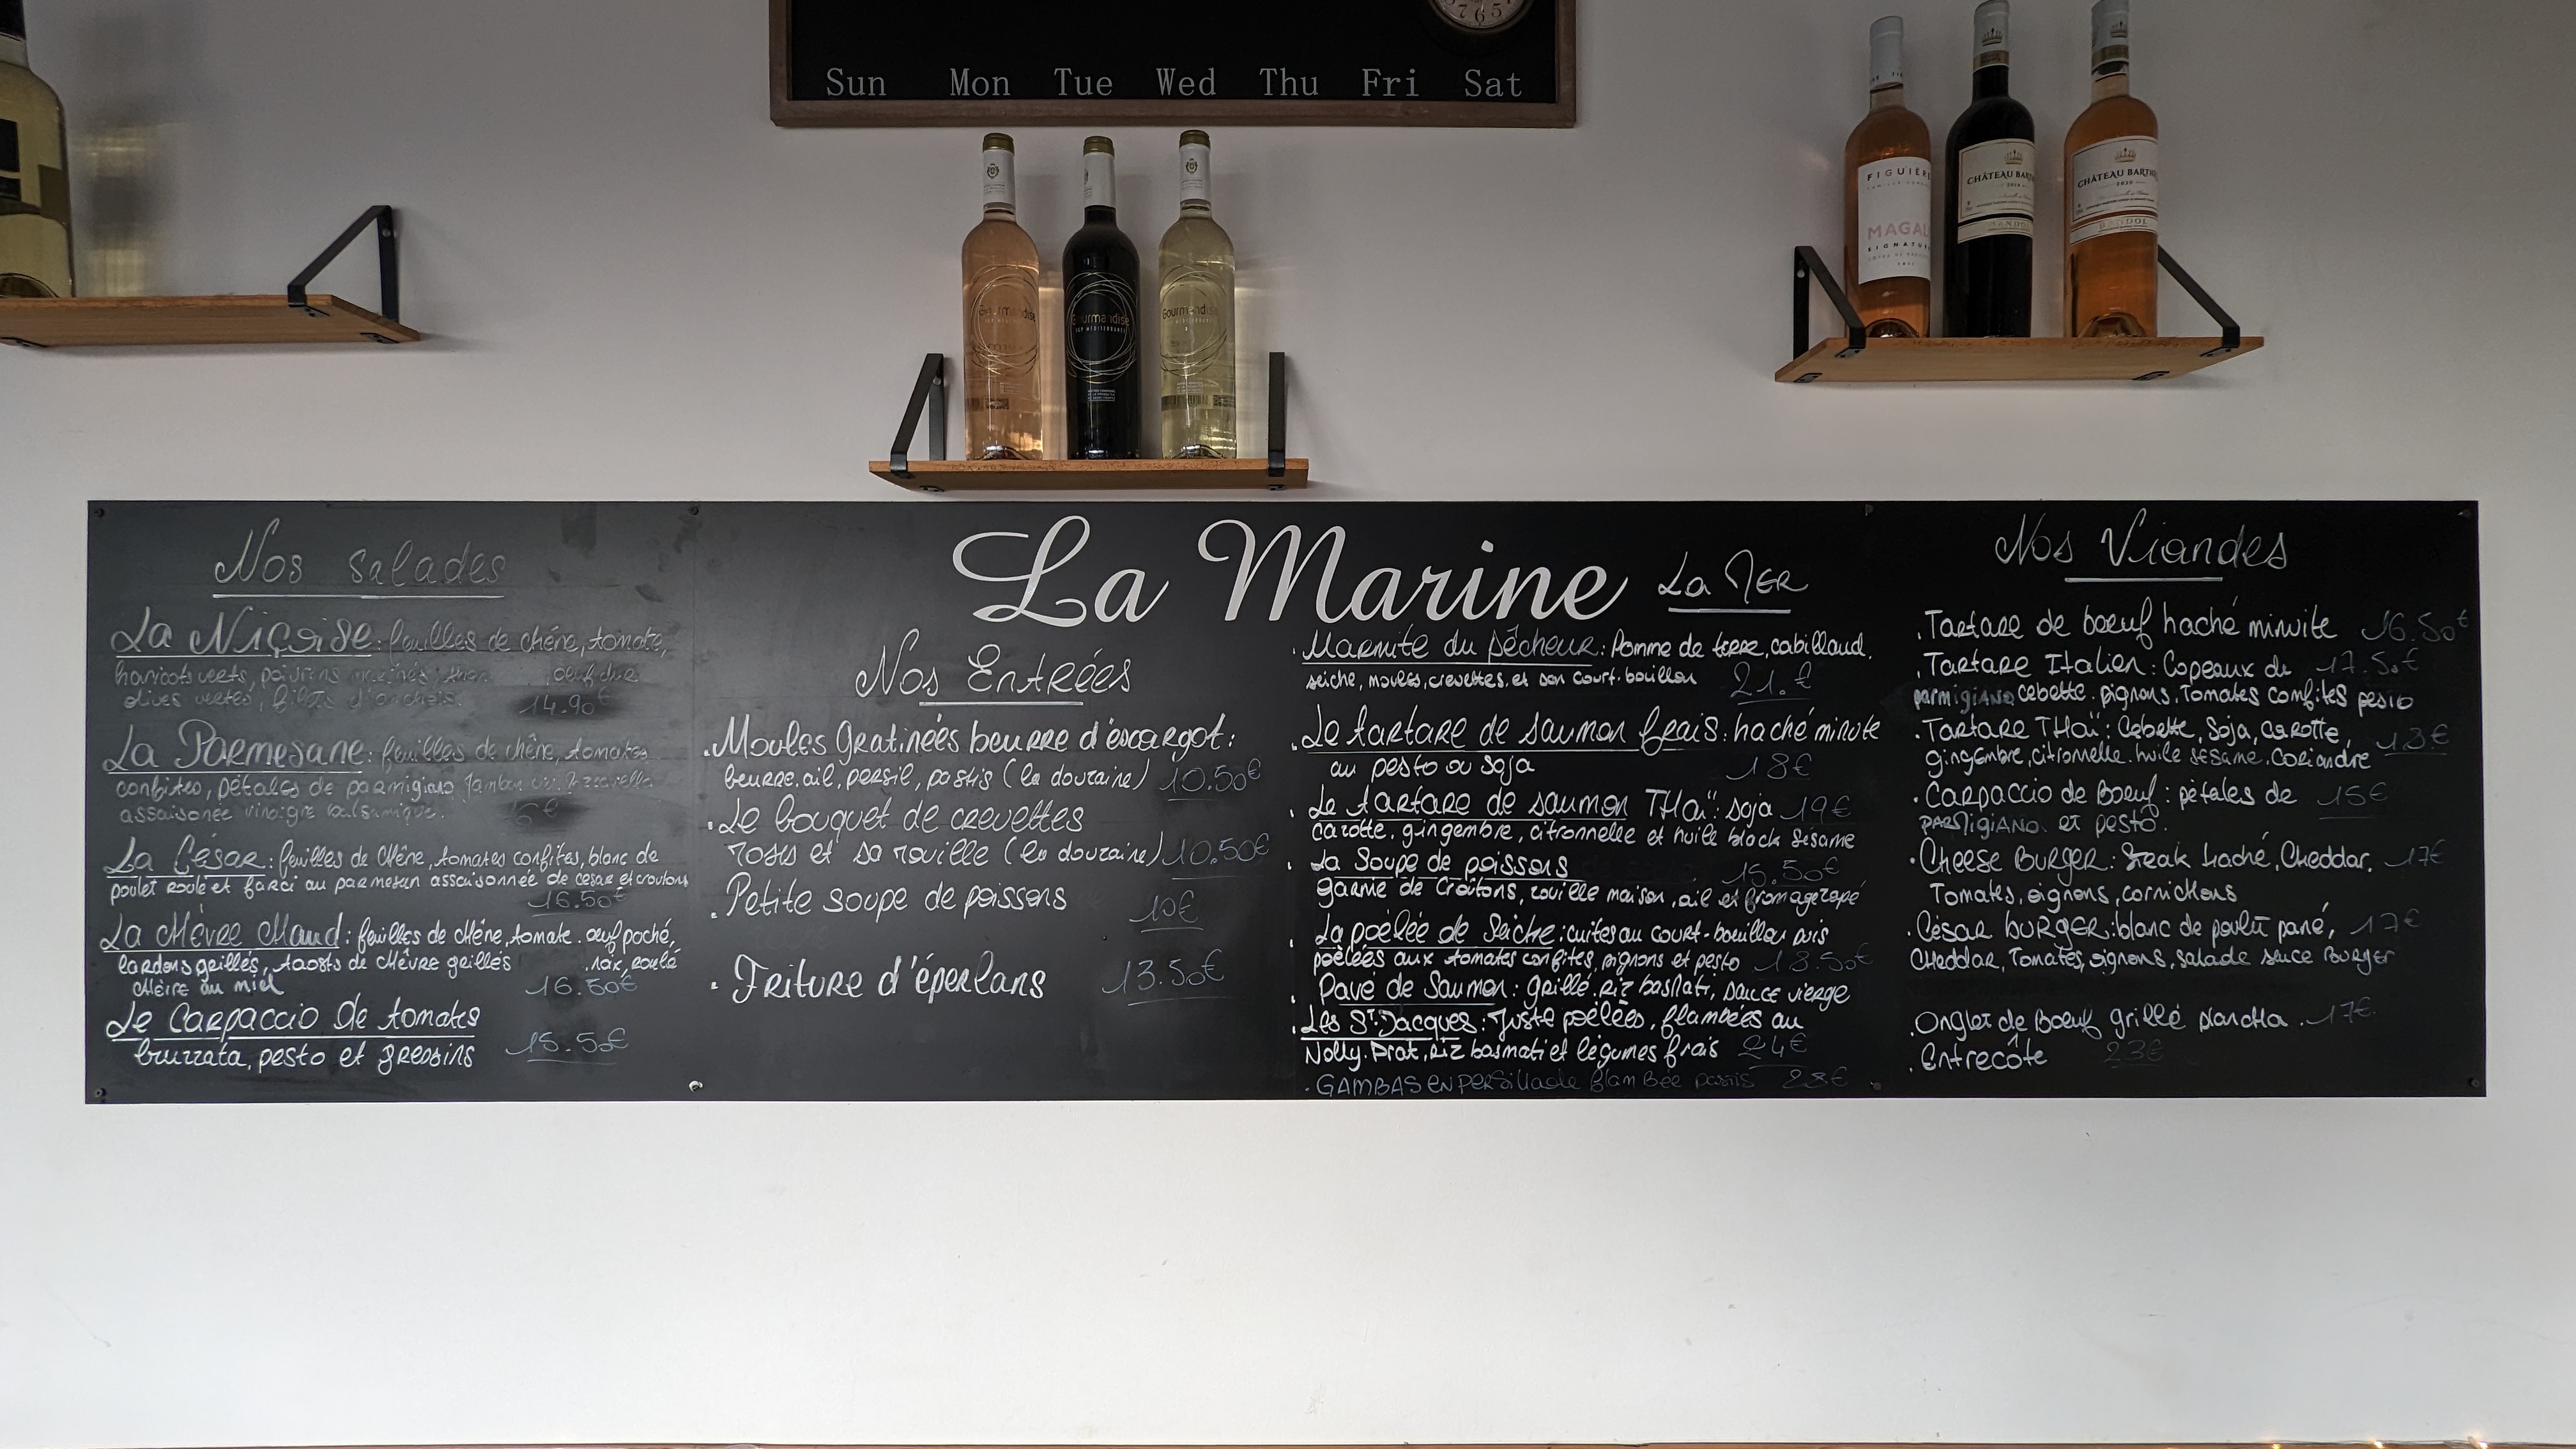 Sun Mon Tue Wed Thu Fri Sat
7 6 5
FIGUIÈRE
MAGALI
SIGNATURE
CHÂTEAU BARTH
2019
BANDOL
CHÂTEAU BARTH
2020
BANDOL
Gourmandise
IGP MÉDITERRANÉE
Gourmandise
IGP MÉDITERRANÉE
Gourmandise
La Marine
Nos salades
La Niçoise: feuilles de chêne, tomate,
haricots verts, poivrons marinés, thon oeuf dur
olives vertes, filets d'anchois. 14.90€
La Parmesane: feuilles de chêne, tomates
confites, pétales de parmigiano jambon
assaisonée vinaigre balsamique.
La César: feuilles de chêne, tomates confites, blanc de
poulet roulé et farci au parmesan assaisonnée de césar et croutons
16.50€
La chèvre chaud: feuilles de chêne, tomate. oeuf poché,
lardons grillés, toasts de chèvre grillés .noix, roulé
chèvre au miel 16.50€
Le Carpaccio de tomates
burrata, pesto et gressins 15.50€
Nos Entrées
. Moules Gratinées beurre d'éscargot:
beurre. ail, persil, pastis (la douzaine) 10.50€
. Le bouquet de crevettes
roses et sa rouille (la douzaine) 10.50€
. Petite soupe de poissons 10€
. Friture d'éperlans 13.50€
La MER
. Marmite du pêcheur: Pomme de terre, cabillaud.
seiche, moules, crevettes. et son court-bouillon 21.€
. Le tartare de saumon frais: haché minute
au pesto ou soja 18€
. Le tartare de saumon THaï: soja 19€
carotte, gingembre, citronnelle et huile black sésame
. La Soupe de poissons 15.50€
garnie de Croûtons, rouille maison, ail et fromage rapé
. La poêlée de Seiche: cuites au court-bouillon puis
poêlées aux tomates confites, pignons et pesto 18.50€
. Pavé de Saumon: grillé. riz basmati, sauce vierge
. Les St Jacques: Juste poêlées, flambées au
Noilly. Prat, riz basmati et légumes frais 24€
. GAMBAS EN PERSillade flambée pastis
Nos Viandes
. Tartare de boeuf haché minute 16.50€
. Tartare Italien: Copeaux de 17.50€
parmigiano cebette. pignons. Tomates confites pesto
. Tartare THaï: Cebette, Soja, carotte,
gingembre, citronnelle. huile sésame. Coriandre
. Carpaccio de Boeuf: pétales de 15€
PARMIGIANO et pesto.
. Cheese BURGER: Steak haché, Cheddar. 17€
Tomates, oignons, cornichons
. César BURGER: blanc de poulet pané, 17€
Cheddar, Tomates, oignons, salade sauce Burger
. Onglet de Boeuf grillé plancha. 17€
. Entrecôte 23€